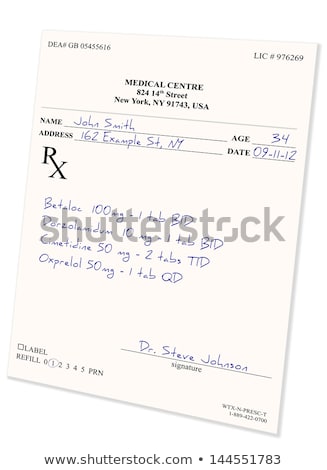 DEA# GB 05455616
LIC # 976269
MEDICAL CENTRE
824 14th Street
New York, NY 91743, USA
NAME John Smith AGE 34
ADDRESS 162 Example St, NY DATE 09-11-12
Rx
Betaloc 100mg - 1 tab BID
Dorzolamidum 10 mg - 1 tab BID
Cimetidine 50 mg - 2 tabs TID
Oxprelol 50mg - 1 tab QD
Dr. Steve Johnson
signature
LABEL
REFILL 0 1 2 3 4 5 PRN
WTX-N-PRESC-T
1-889-422-0700
shutterstock
shutterstock · 144551783